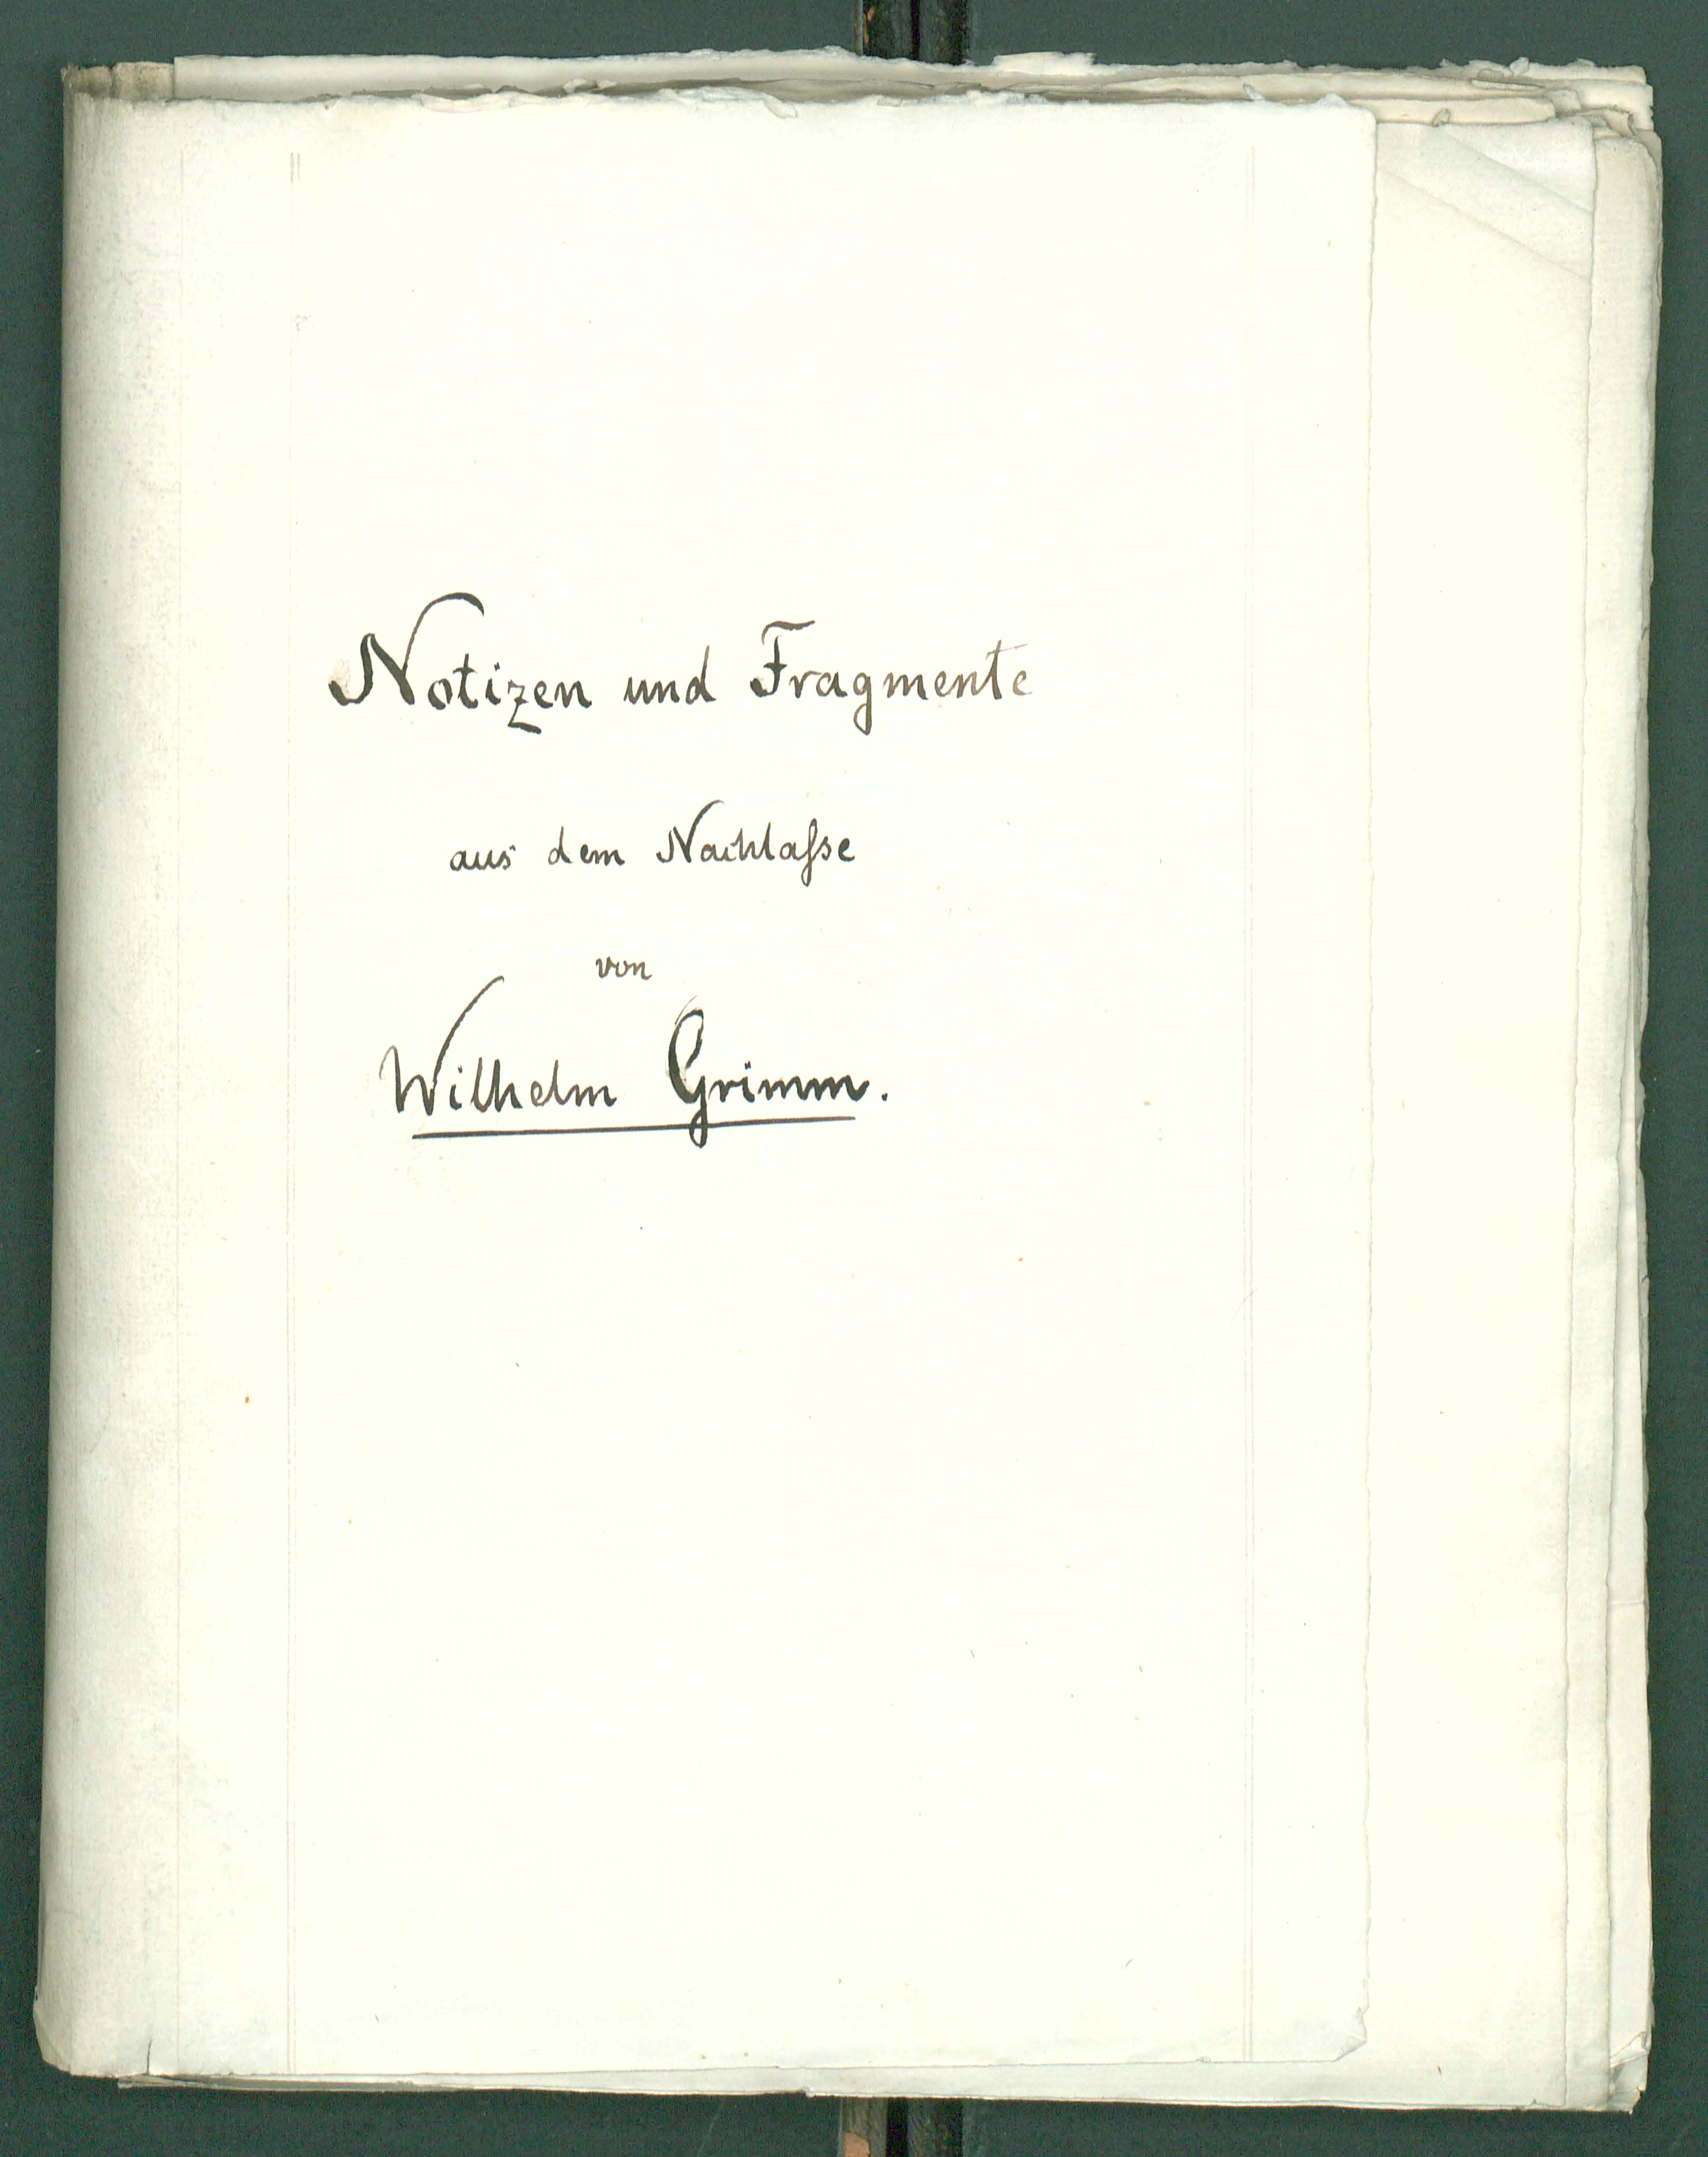 Notizen und Fragmente
aus dem Nachlaſse
von
Wilhelm Grimm.